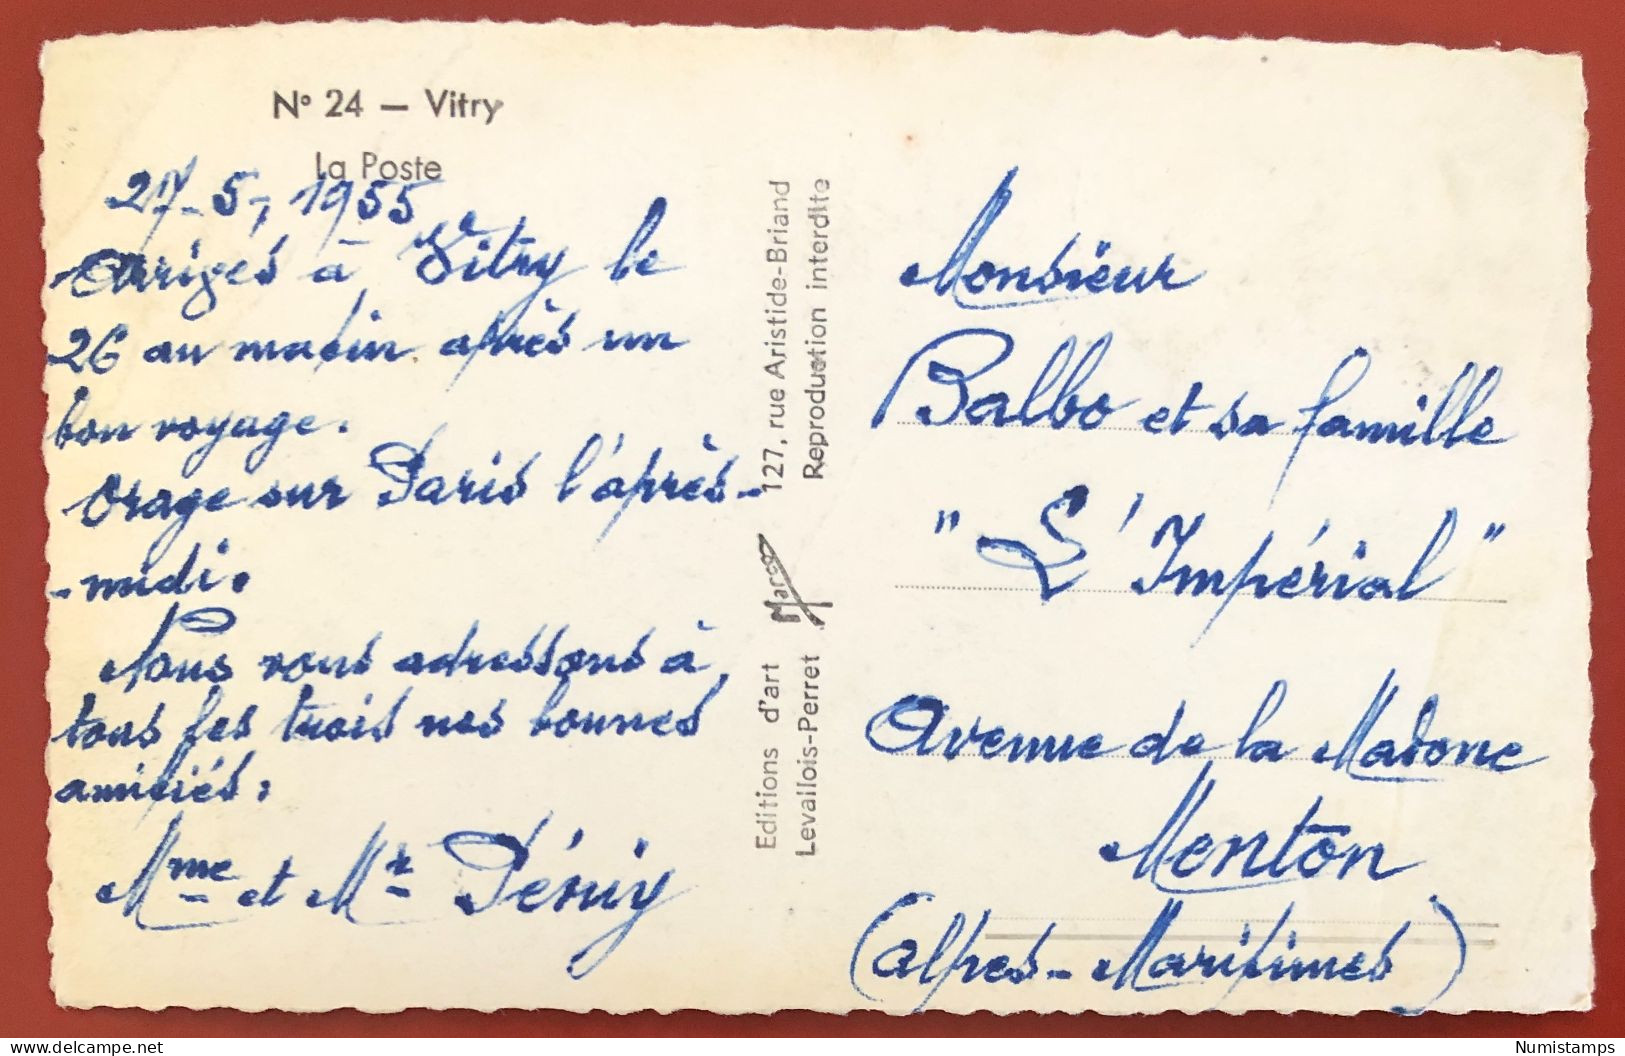 N° 24 — Vitry
La Poste
27-5-, 1955
Arrivés à Vitry le
26 au matin après un
bon voyage.
Orage sur Paris l'après-
-midi.
Nous vous adressons à
tous les trois nos bonnes
amitiés.
Mme et Mr
Editions d'art Marco 127, rue Aristide-Briand
Levallois-Perret Reproduction interdite
Monsieur
Balbo et sa famille
"L'Impérial"
Avenue de la Madone
Menton
(Alpes-Maritimes)
Numistamps